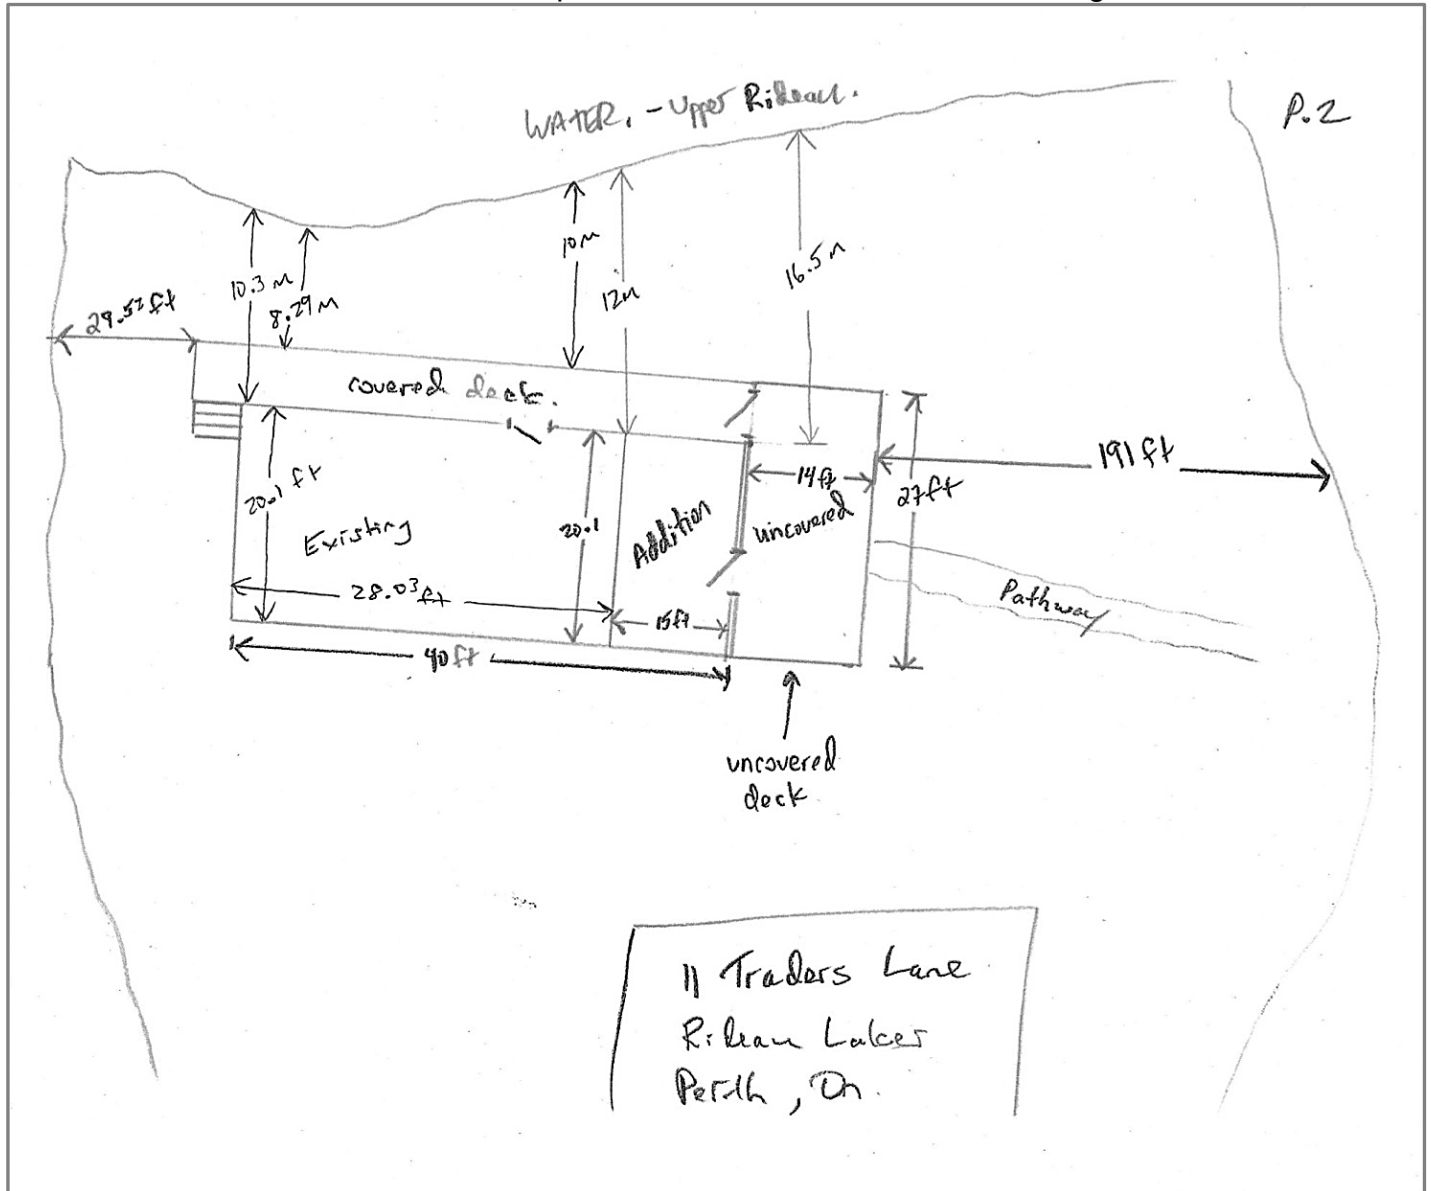 WATER. - Upper Rideau.
P.2
29.52 ft
10.3 M
8.29 M
10 M
12M
16.5 M
covered deck.
20.1 ft
Existing
20.1
Addition
14 ft
uncovered
27 ft
191 ft
28.03 ft
15 ft
Pathway
40 ft
uncovered
deck
11 Traders Lane
Rideau Lakes
Perth, On.